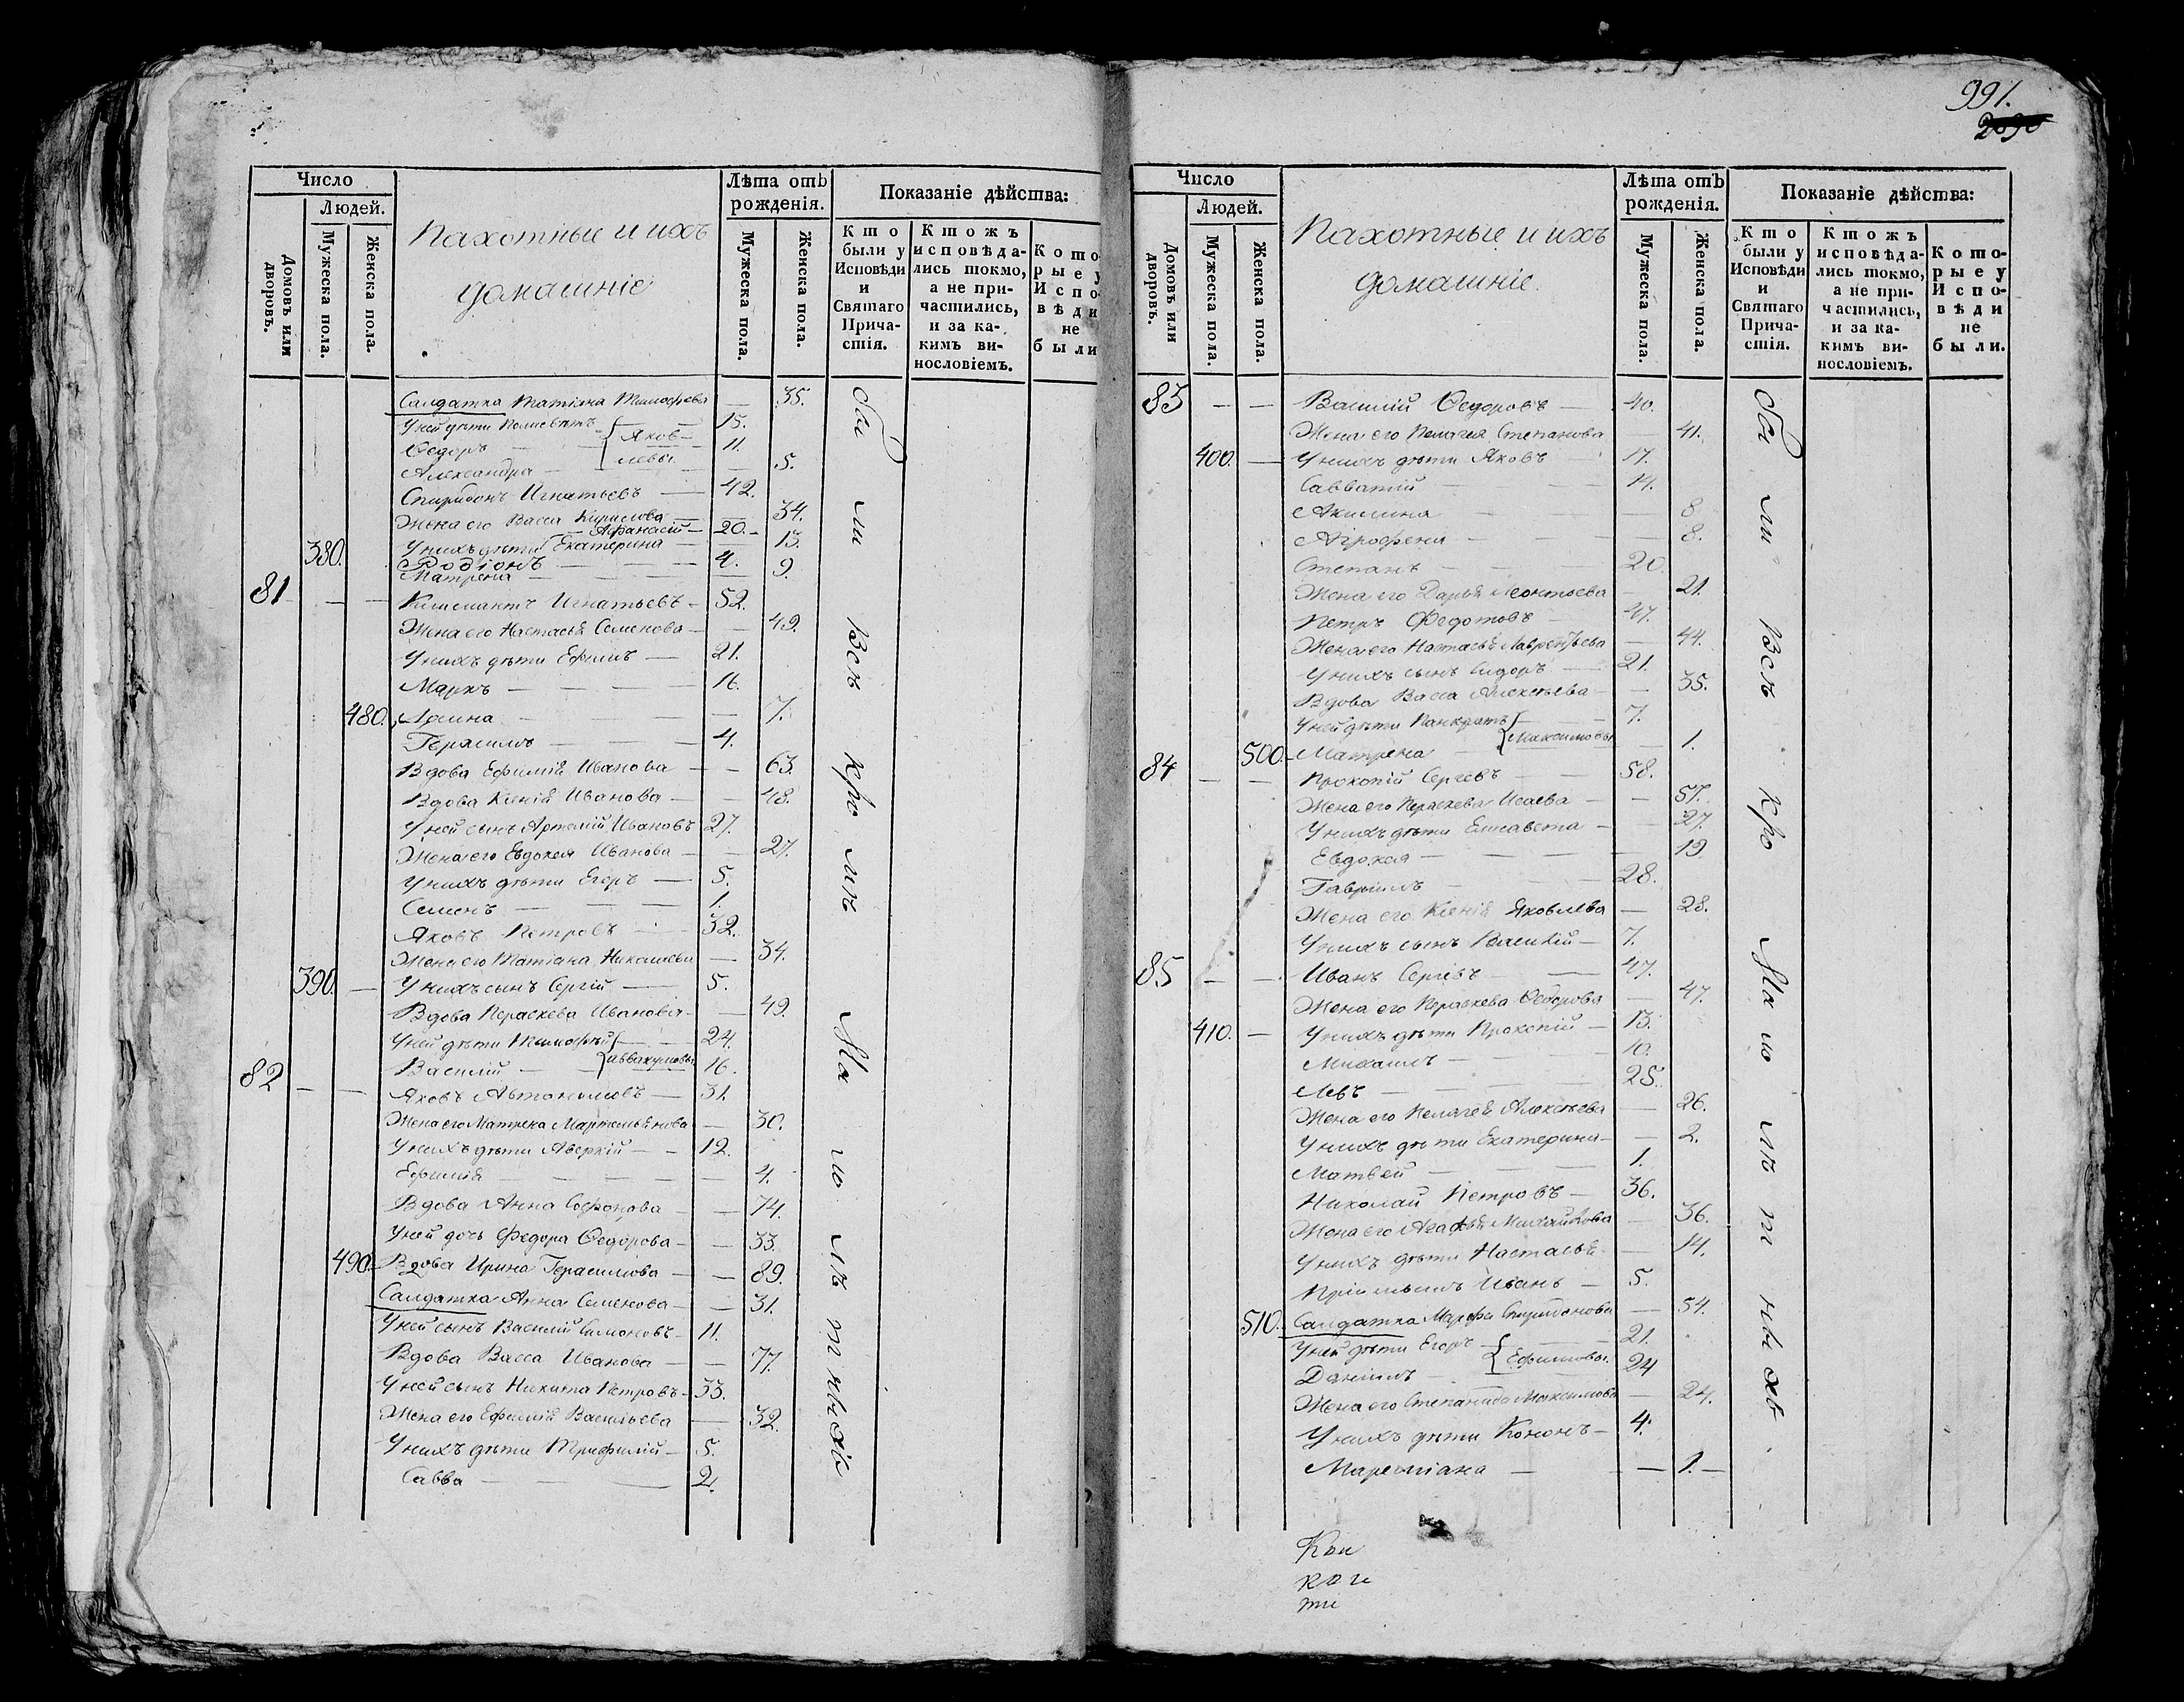 991.
2090
Число
Людей.
Домовъ или дворовъ.
Мужеска пола.
Женска пола.
Пахотные и ихъ
домашніе
Лѣта отъ рожденія.
Мужеска пола.
Женска пола.
Показаніе дѣйства:
Кто были у Исповѣди и Святаго Причастія.
Ктожъ исповѣдались токмо, а не причастились, и за какимъ винословіемъ.
Которые у Исповѣди не были
Салдатка Татіяна Тимофеева — 35.
У ней дѣти — 15.
Ѳедоръ — Яковлевы 11.
Александра — 5.
Спиридонъ Игнатьевъ — 42.
Жена его Васса Кирилова — 34.
Афанасій — 20.
380. У нихъ дѣти Екатерина — 13.
Родіонъ — 4.
Матрена — 9.
81 — — Климантъ Игнатьевъ — 52.
Жена его Настасья Семенова — 49.
У нихъ дѣти Ефимъ — 21.
Маркъ — 16.
480. Арина — 7.
Герасимъ — 4.
Вдова Ефимія Иванова — 63.
Вдова Ксенія Иванова — 48.
У ней сынъ Артемій Ивановъ 27.
Жена его Евдокея Иванова — 27.
У нихъ дѣти Егоръ — 5.
Семенъ — 1.
Яковъ Петровъ — 32.
Жена его Татіана Николаева — 34.
390. — У нихъ сынъ Сергій — 5.
Вдова Параскева Иванова — 49.
У ней дѣти Тимофѣй — 24.
Василій — Аввакумовы 16.
82 — — Яковъ Автономовъ — 31.
Жена его Матрена Мартемьянова — 30.
У нихъ дѣти Аверкій — 12.
Ефимія — 4.
Вдова Анна Софонова — 74.
У ней дочь Федора Ѳедорова — 33.
490. Вдова Ирина Герасимова — 89.
Салдатка Анна Семенова — 31.
У ней сынъ Василій Симоновъ — 11.
Вдова Васса Иванова — 77.
У ней сынъ Никита Петровъ — 33.
Жена его Ефимія Васильева — 32.
У нихъ дѣти Трифилій — 5.
Савва — 2.
бы ли Всѣ Кро мѣ Ма ло лѣ т ныхъ
Число
Людей.
Домовъ или дворовъ.
Мужеска пола.
Женска пола.
Пахотные и ихъ
домашніе.
Лѣта отъ рожденія.
Мужеска пола.
Женска пола.
Показаніе дѣйства:
Кто были у Исповѣди и Святаго Причастія.
Ктожъ исповѣдались токмо, а не причастились, и за какимъ винословіемъ.
Которые у Исповѣди не были.
83 — — Василій Ѳедоровъ — 40.
Жена его Пелагея Степанова — 41.
400. — У нихъ дѣти Яковъ — 17.
Савватій — 14.
Акилина — 8
Агрофена — 8.
Степанъ — 20.
Жена его Дарья Леонтьева — 21.
Петръ Федотовъ — 47.
Жена его Настасья Лаврентьева — 44.
У нихъ сынъ Сидоръ — 21.
Вдова Васса Алексѣева — 35.
У ней дѣти Панкратъ — 7.
500. Матрена — Максимовы — 1.
84 — — Прокопій Сергевъ — 58.
Жена его Параскева Исаева — 57.
У нихъ дѣти Елисавета — 27.
Евдокея — 19
Гавріилъ — 28.
Жена его Ксенія Яковлева — 28.
У нихъ сынъ Василій — 7.
85 — — Иванъ Сергѣевъ — 47.
Жена его Параскева Ѳедорова — 47.
410. — У нихъ дѣти Прокопій — 13.
Михаилъ — 10.
Левъ — 25.
Жена его Пелагея Алексѣева — 26.
У нихъ дѣти Екатерина — 2.
Матвей — 1.
Николай Петровъ — 36.
Жена его Агафья Михайлова — 36.
У нихъ дѣти Настасья — 14.
Пріймышъ Иванъ — 5.
510. Салдатка Марфа Спиридонова — 54.
У ней дѣти Егоръ — 21.
Даніилъ — Ефимовы. 24
Жена его Степанида Максимова — 24.
У нихъ дѣти Кононъ — 4.
Мареміана — 1.
бы ли Всѣ Кро мѣ Ма ло лѣ т ныхъ